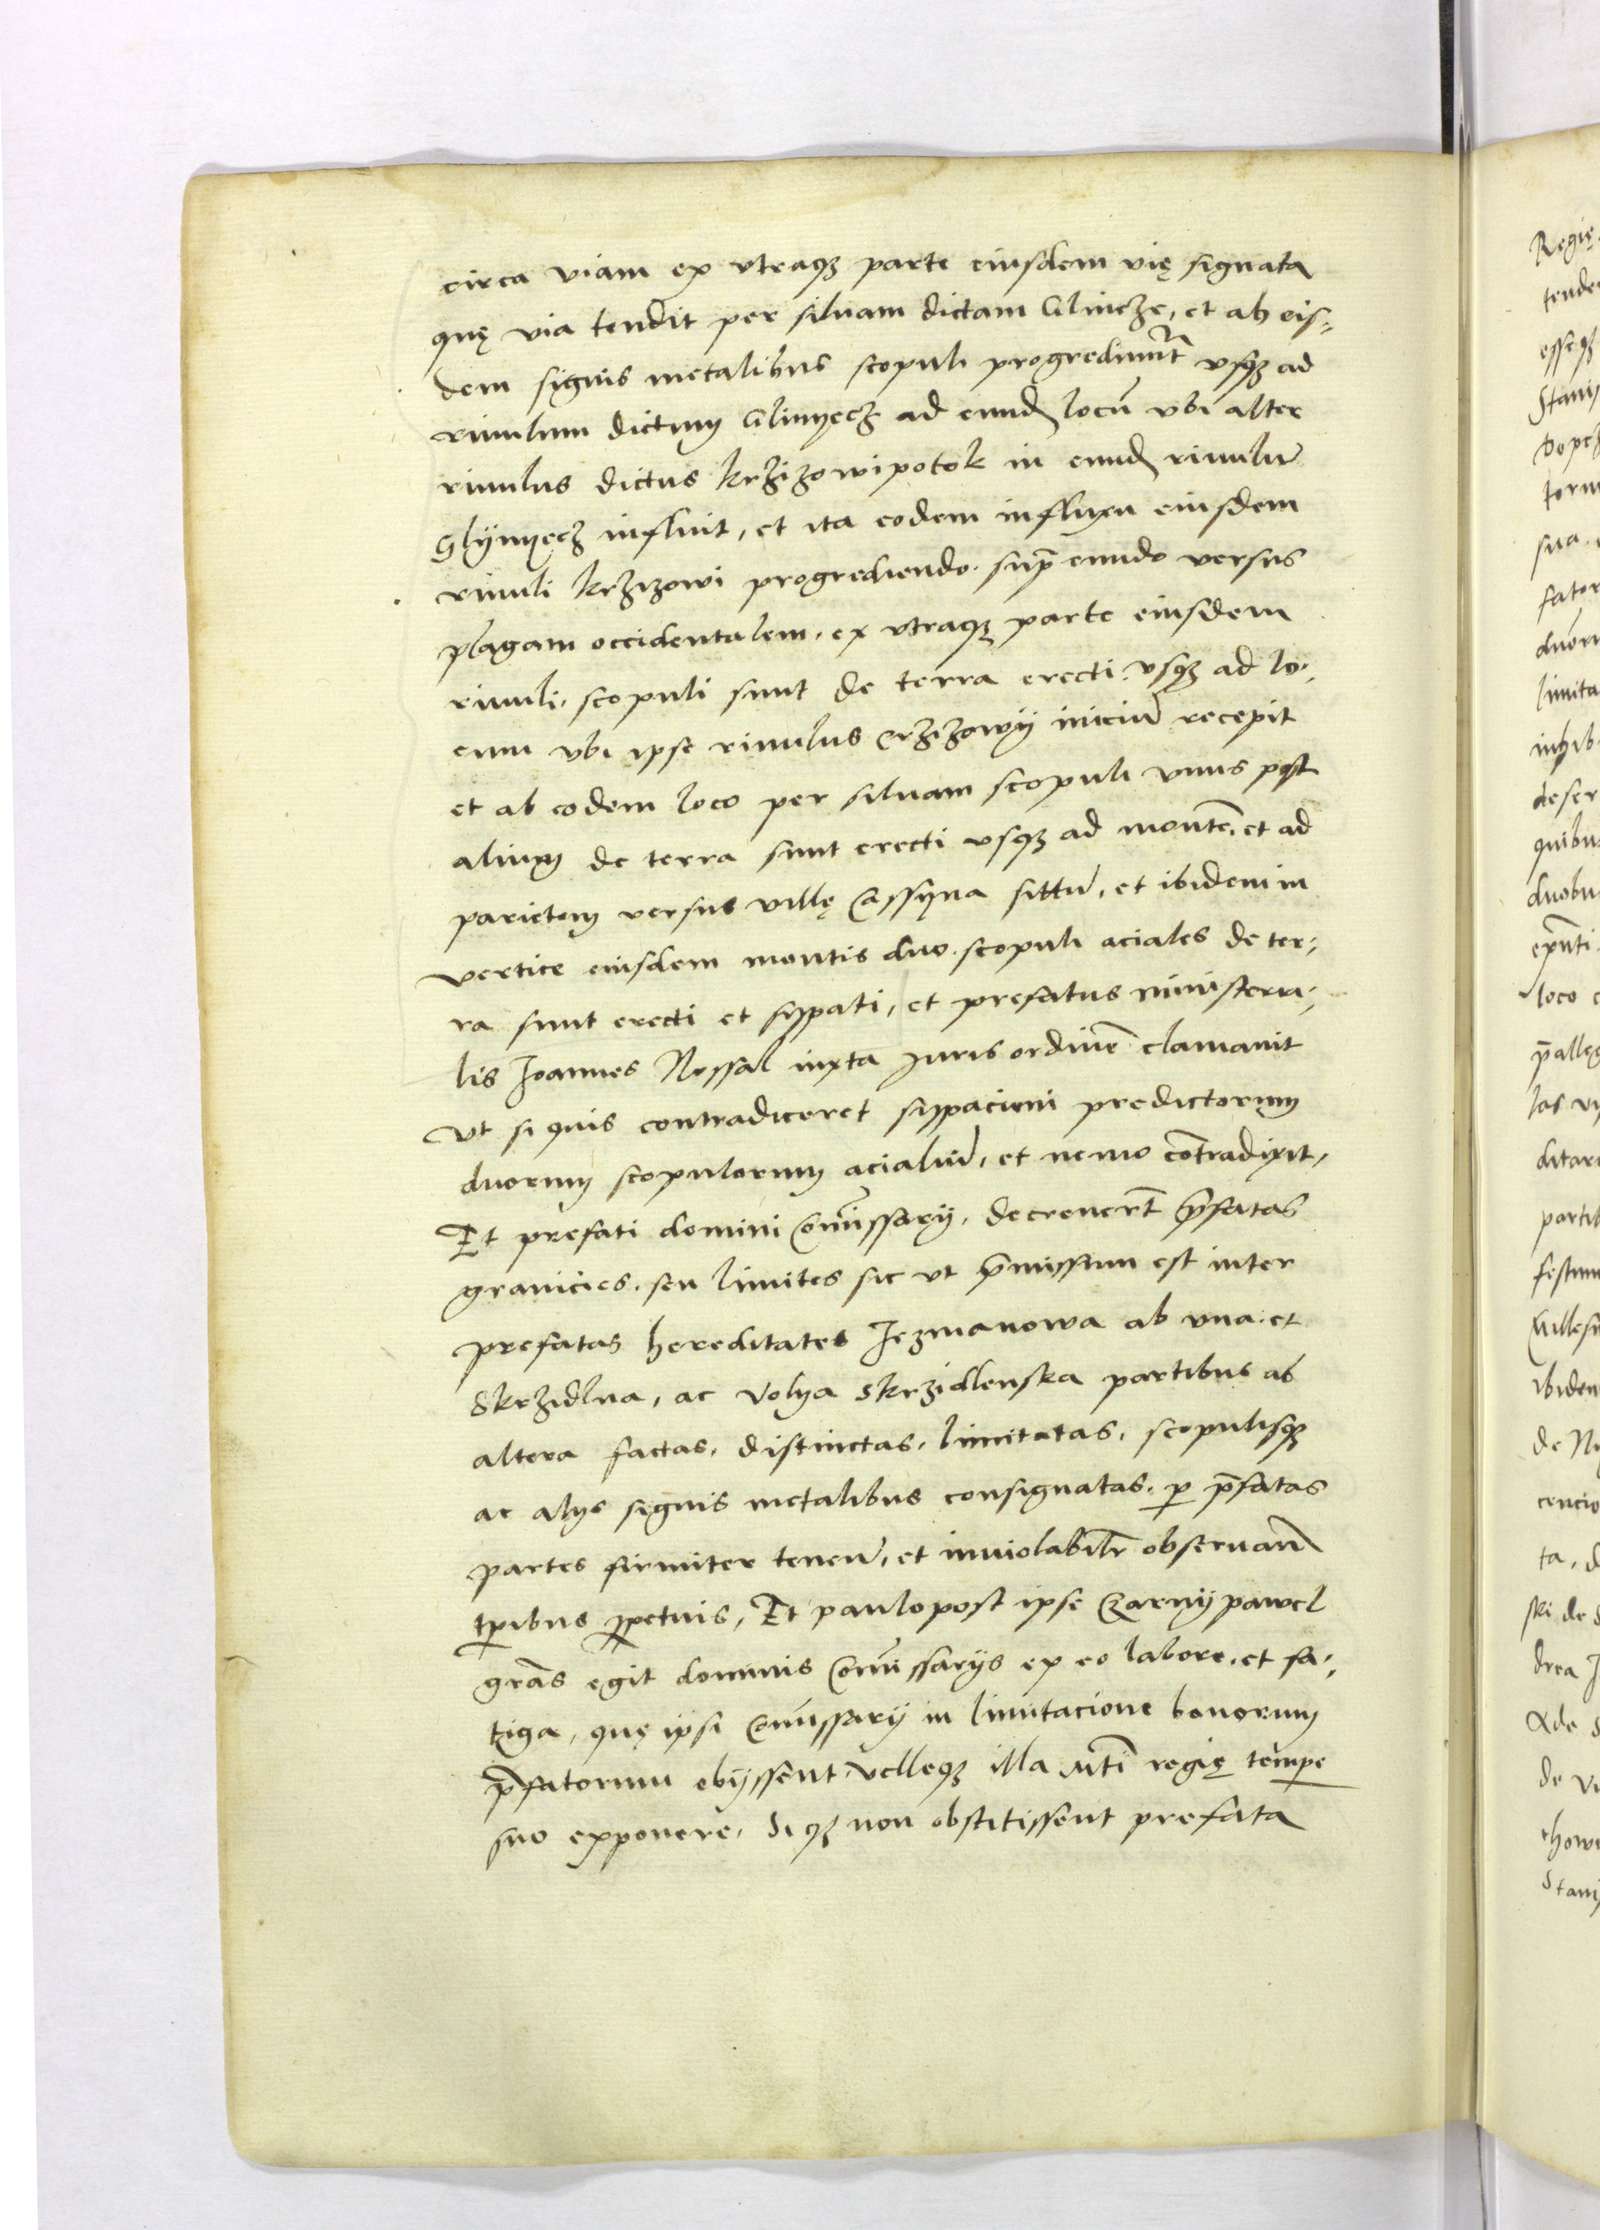 circa viam ex vtraqȝ parte eiusdem vię signata
quę via tendit per siluam dictam Glincze, et ab eis-
dem signis metalibus scopuli progrediunt̃ vsqȝ ad
riuulum dictum Glinyecz ad eund locũ vbi alter
riuulus dictus krzizowipotok in eund riuulũ
Glÿnyecz influit, et ita eodem influxu eiusdem
riuuli krzizowi progrediendo. sup̃ eundo versus
plagam occidentalem, ex vtraqȝ parte eiusdem
riuuli, scopuli sunt de terra erecti, vsqȝ ad lo-
cum vbi ipse riuulus Crzizowÿ iniciũ recepit
et ab eodem loco per siluam scopuli vnus post
alium de terra sunt erecti vsqȝ ad montẽ, et ad
parietem versus villę Cassyna sittũ, et ibidem in
vertice eiusdem montis duo scopuli aciales de ter-
ra sunt erecti et sÿpati, et prefatus ministeria-
lis Joannes Nossal iuxta Juris ordinẽ clamauit
vt si quis contradiceret sÿpacioni predictorum
duorum scopulorum acialiũ, et nemo cõtradixit,
Et prefati domini Com̃issarÿ, decreuerũt p̃fatas
granicies. seu limites sic vt p̃missum est inter
prefatas hereditates Jezmanowa ab vna et
Skrzidlna, ac Volya Skrzidlenska partibus ab
altera factas, distinctas, limitatas, scopulisqȝ
ac alÿs signis metalibus consignatas. p̱ p̃fatas
partes firmiter teneri, et inuiolabilr̃ obseruari
tp̱ibus p̱petuis, Et paulopost ipse Czarnÿ pawel
grãs egit dominis Com̃issarÿs ex eo labore, et fa-
tiga, quę ipsi Com̃issarÿ in limitacione bonorum
p̃fatorum obÿssent, velleqȝ illa Mti regię tempe
suo exponere, Siqȝ non obstitissent prefata